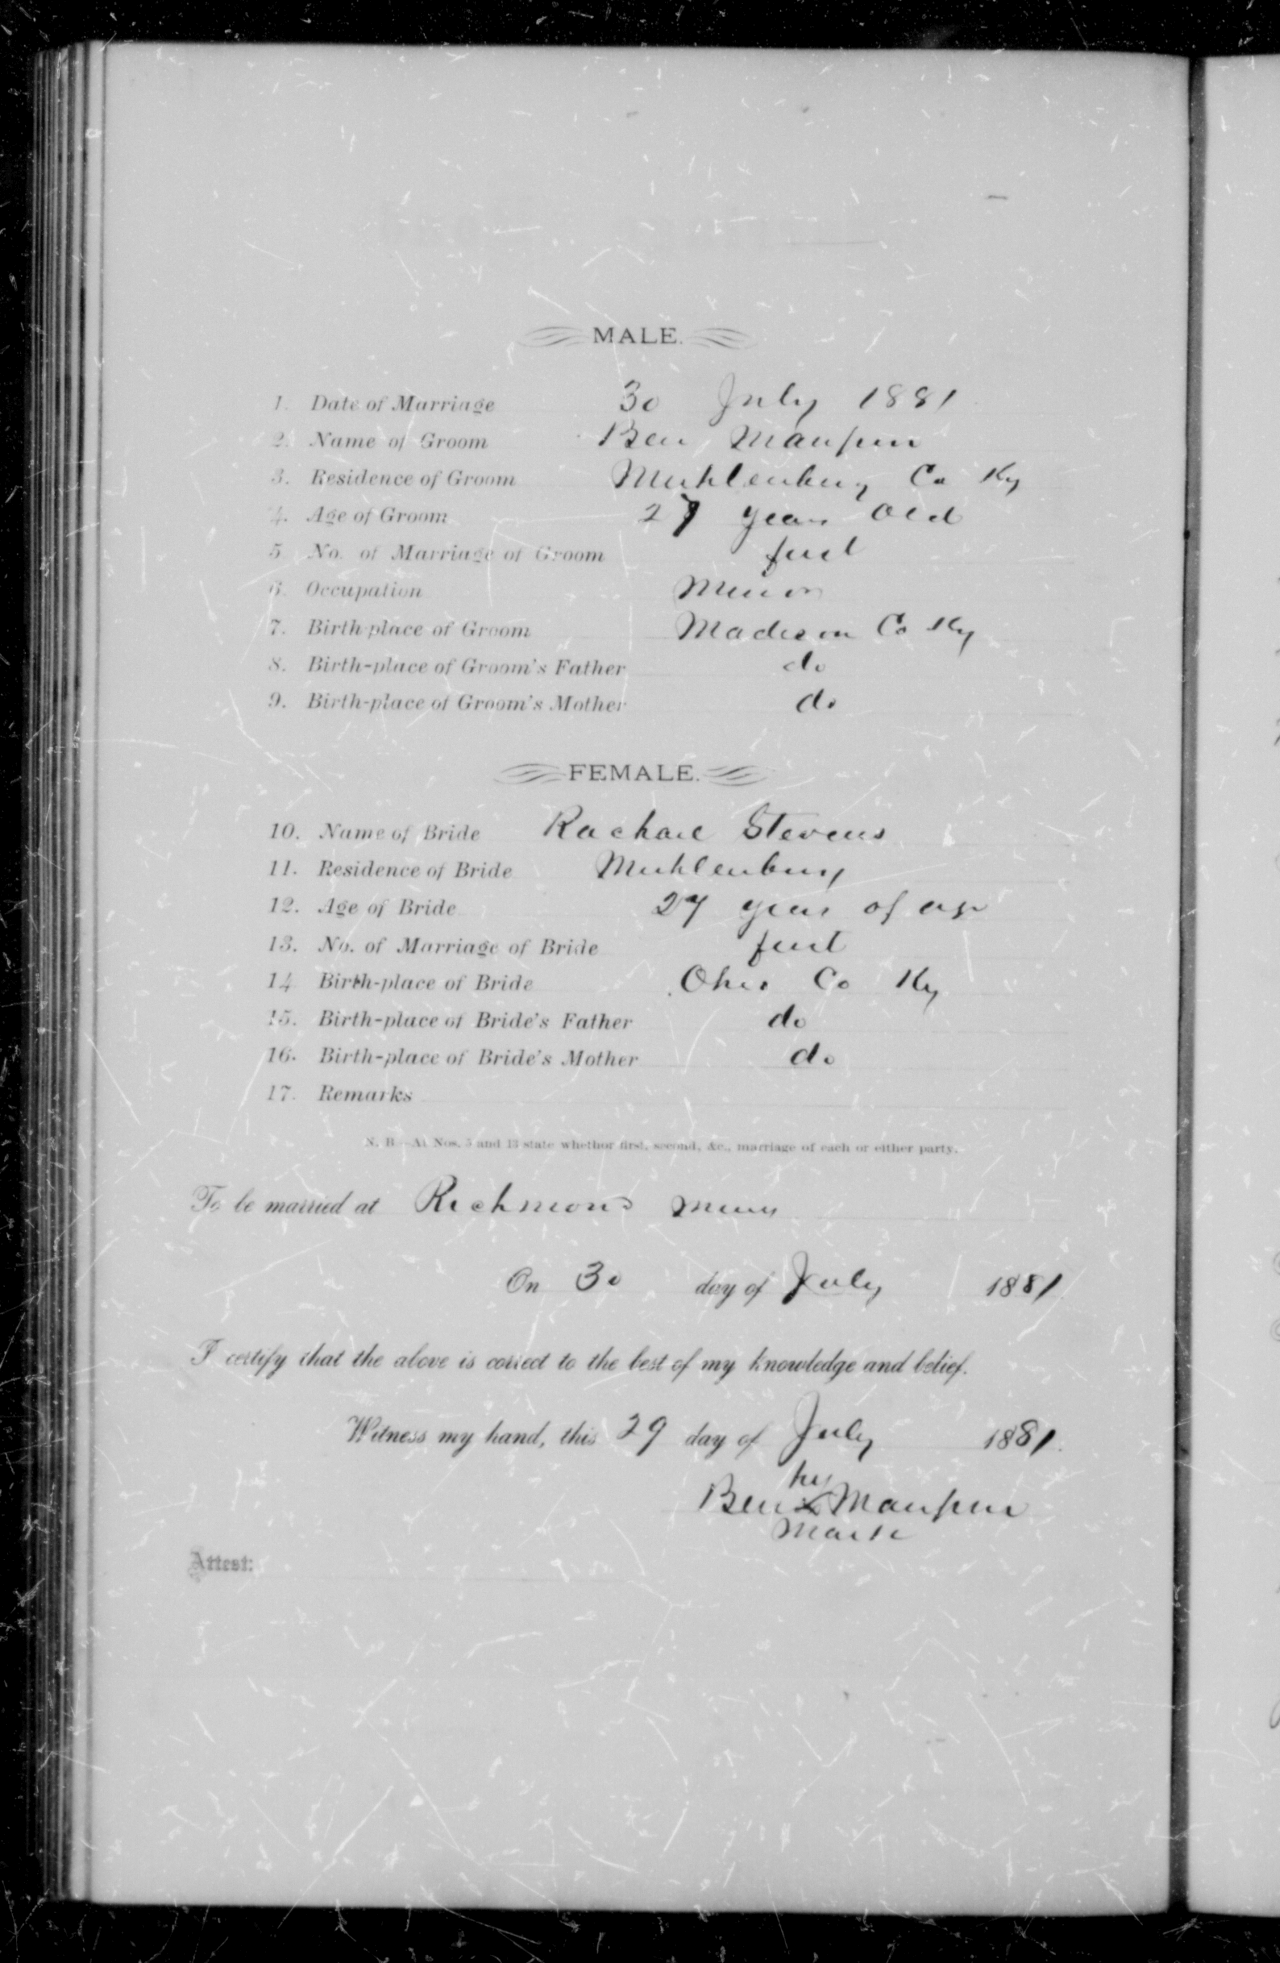 MALE.
1. Date of Marriage 30 July 1881
2. Name of Groom Ben Maupin
3. Residence of Groom Muhlenburg Co Ky
4. Age of Groom 27 years old
5 No. of Marriage of Groom first
6. Occupation Minor
7. Birth place of Groom Madison Co Ky
8. Birth-place of Groom's Father do
9. Birth-place of Groom's Mother do
FEMALE.
10. Name of Bride Rachael Stevens
11. Residence of Bride Muhlenburg
12. Age of Bride 27 years of age
13. No. of Marriage of Bride first
14 Birth-place of Bride Ohio Co Ky
15. Birth-place of Bride's Father do
16. Birth-place of Bride's Mother do
17. Remarks
N. B.—At Nos. 5 and 13 state whether first, second, &c., marriage of each or either party.
To be married at Richmond Mines
On 30 day of July 1881
I certify that the above is correct to the best of my knowledge and belief.
Witness my hand, this 29 day of July 1881.
his
Ben x Maupin
mark
Attest: